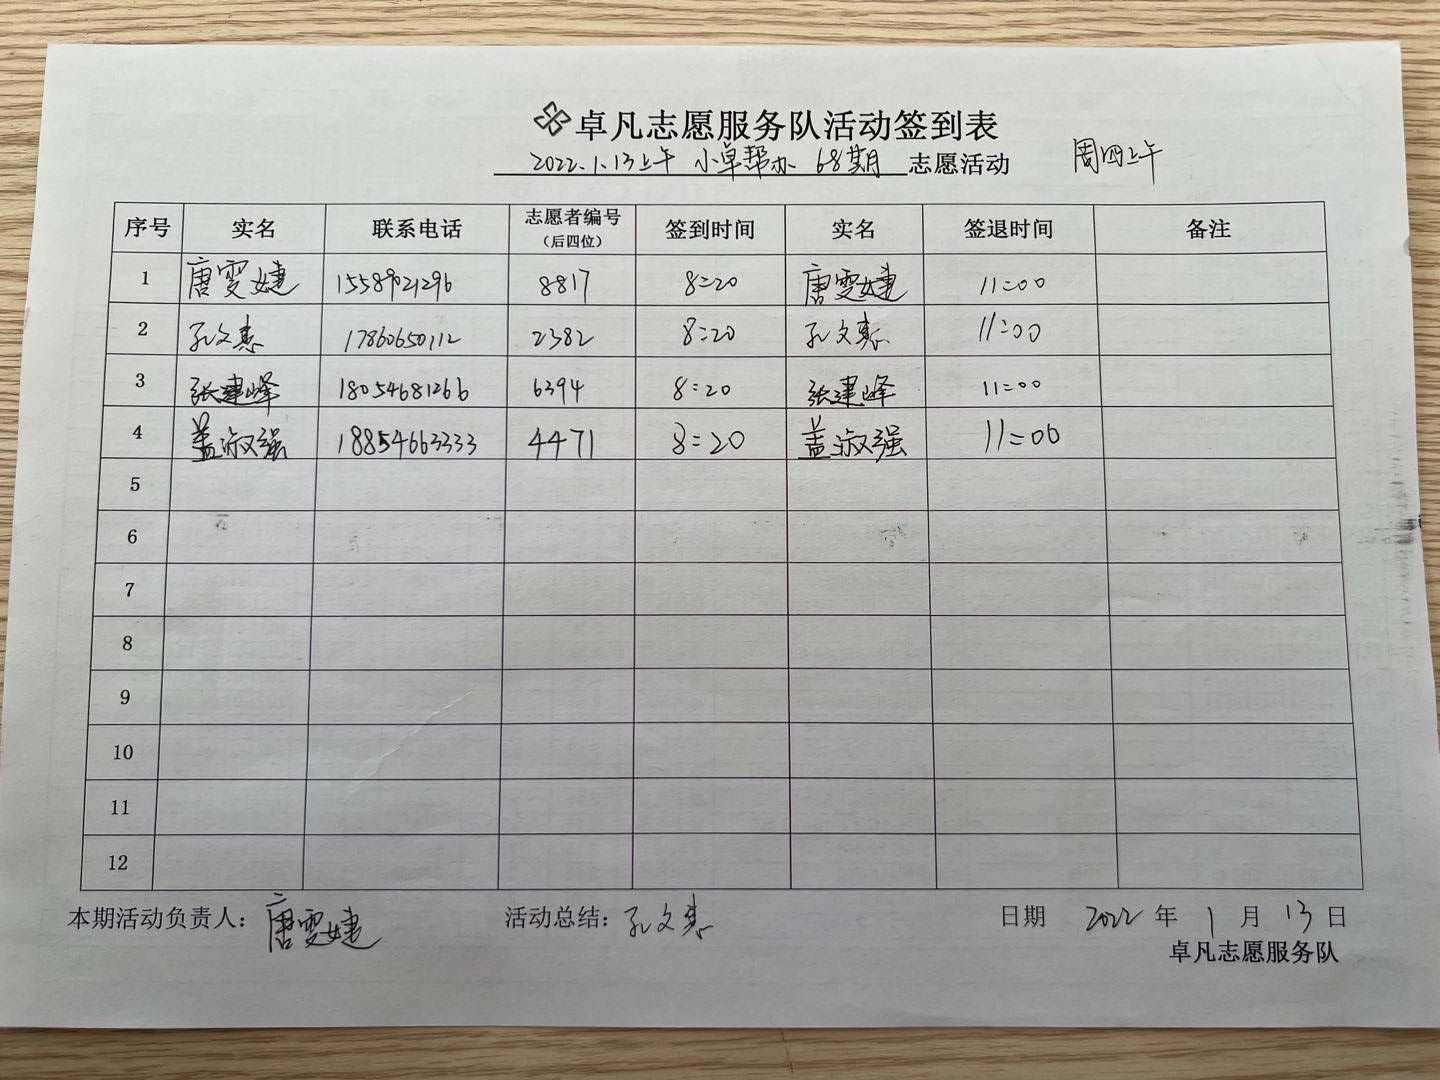 卓凡志愿服务队活动签到表
2022.1.13上午 小卓帮办 68期 志愿活动 周四上午
序号 实名 联系电话 志愿者编号（后四位） 签到时间 实名 签退时间 备注
1 唐雯婕 15589021296 8817 8:20 唐雯婕 11:00
2 孔文惠 17860650112 2382 8:20 孔文惠 11:00
3 张建峰 18054681266 6394 8:20 张建峰 11:00
4 盖淑强 18854663333 4471 8:20 盖淑强 11:00
5
6
7
8
9
10
11
12
本期活动负责人：唐雯婕 活动总结：孔文惠 日期 2022 年 1 月 13 日
卓凡志愿服务队